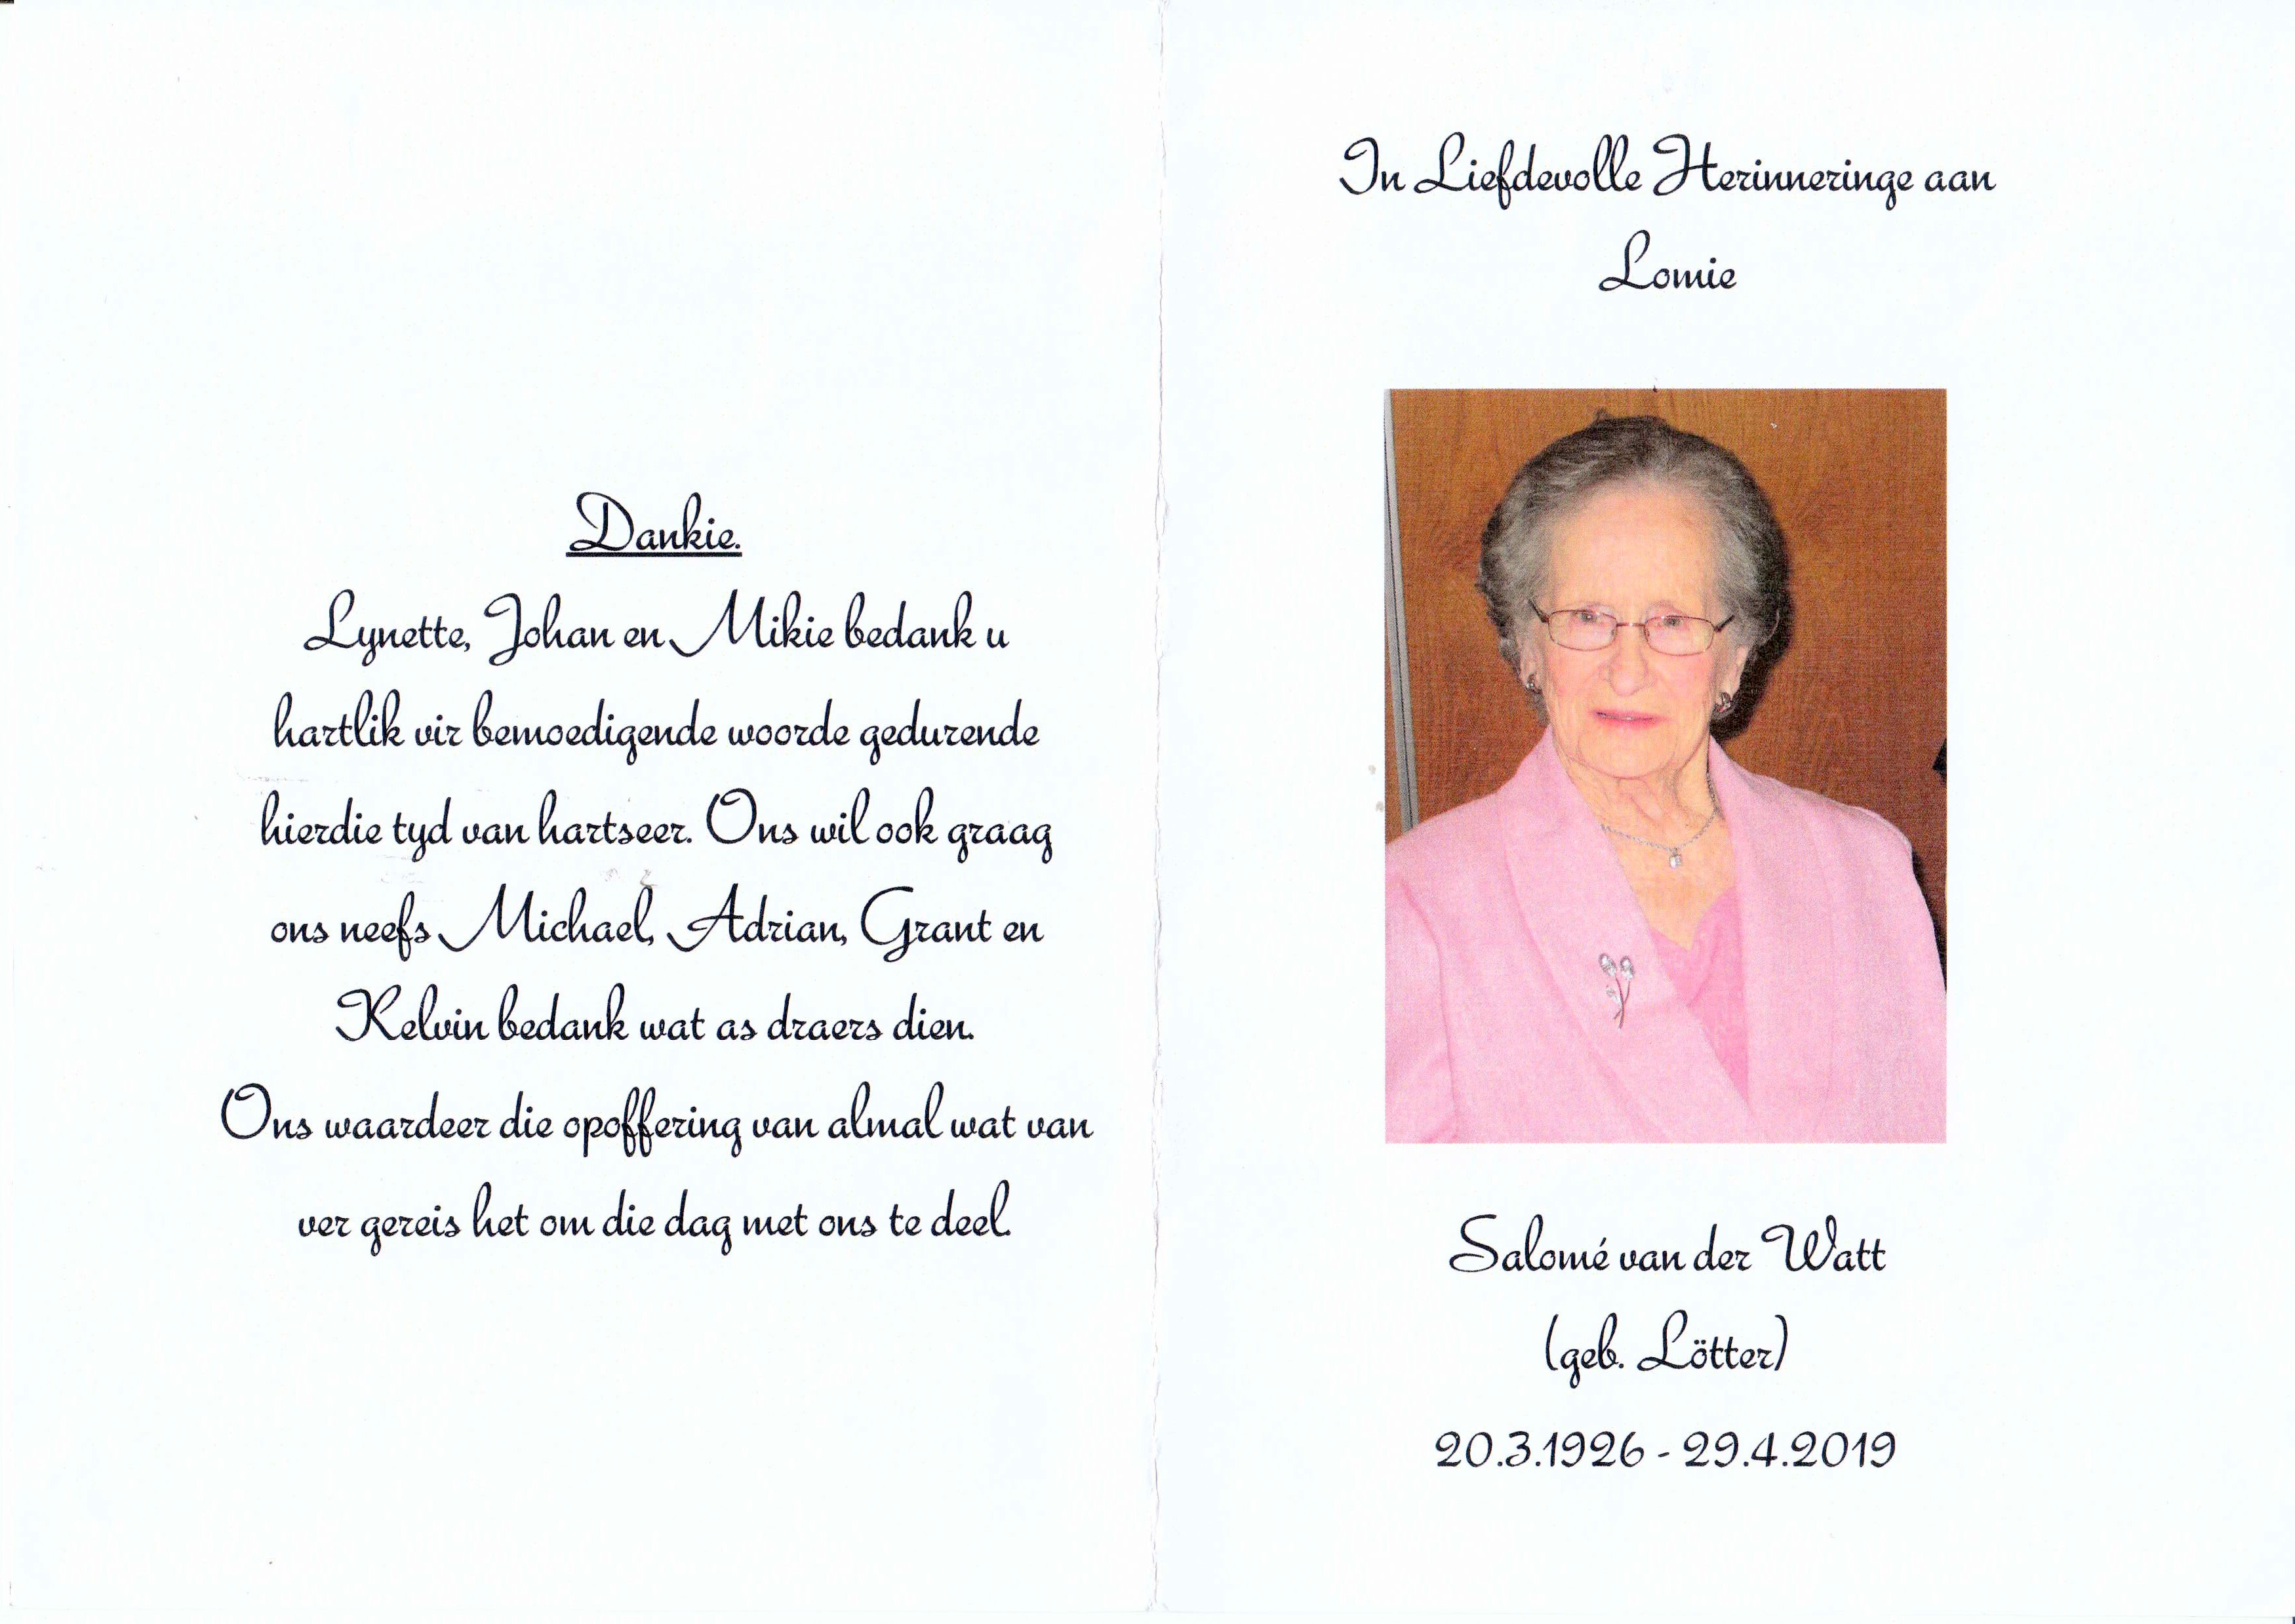 Dankie.
Lynette, Johan en Mikie bedank u
hartlik vir bemoedigende woorde gedurende
hierdie tyd van hartseer. Ons wil ook graag
ons neefs Michael, Adrian, Grant en
Kelvin bedank wat as draers dien.
Ons waardeer die opoffering van almal wat van
ver gereis het om die dag met ons te deel.
In Liefdevolle Herinneringe aan
Lomie
Salomé van der Watt
(geb. Lötter)
20.3.1926 - 29.4.2019